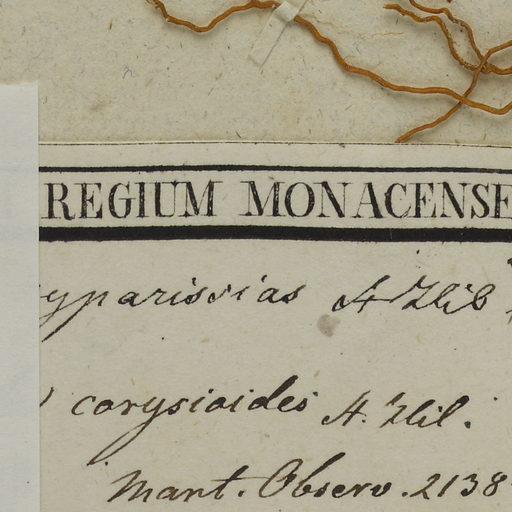 REGIUM MONACENSE
yparissias A. Hil
corysioides A. Hil.
Mant. Observ. 2138